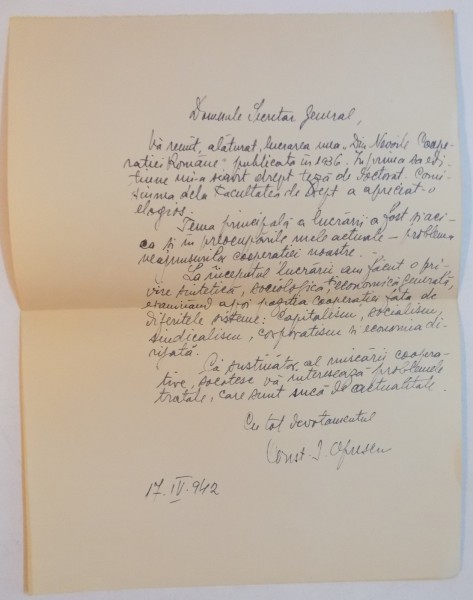 Domnule Secretar General,
Vă remit, alăturat, lucrarea mea „Din Nevoile Coope-
rației Române” publicată în 1936. În prima sa edi-
țiune mi-a servit drept teză de doctorat. Comi-
siunea dela Facultatea de Drept a apreciat-o
elogios.
Tema principală a lucrării a fost și aci-
ca și în preocupările mele actuale – problema
neajunsurilor cooperației noastre.
La începutul lucrării am făcut o pri-
vire sintetică, sociologică, economică generală,
examinând apoi poziția cooperației față de
diferitele sisteme: capitalism, socialism,
sindicalism, corporatism și economia di-
rijată.
Ca susținător al mișcării coopera-
tive, socotesc vă interesează problemele
tratate, care sunt încă de actualitate.
Cu tot devotamentul
Const. I.
17.IV.942